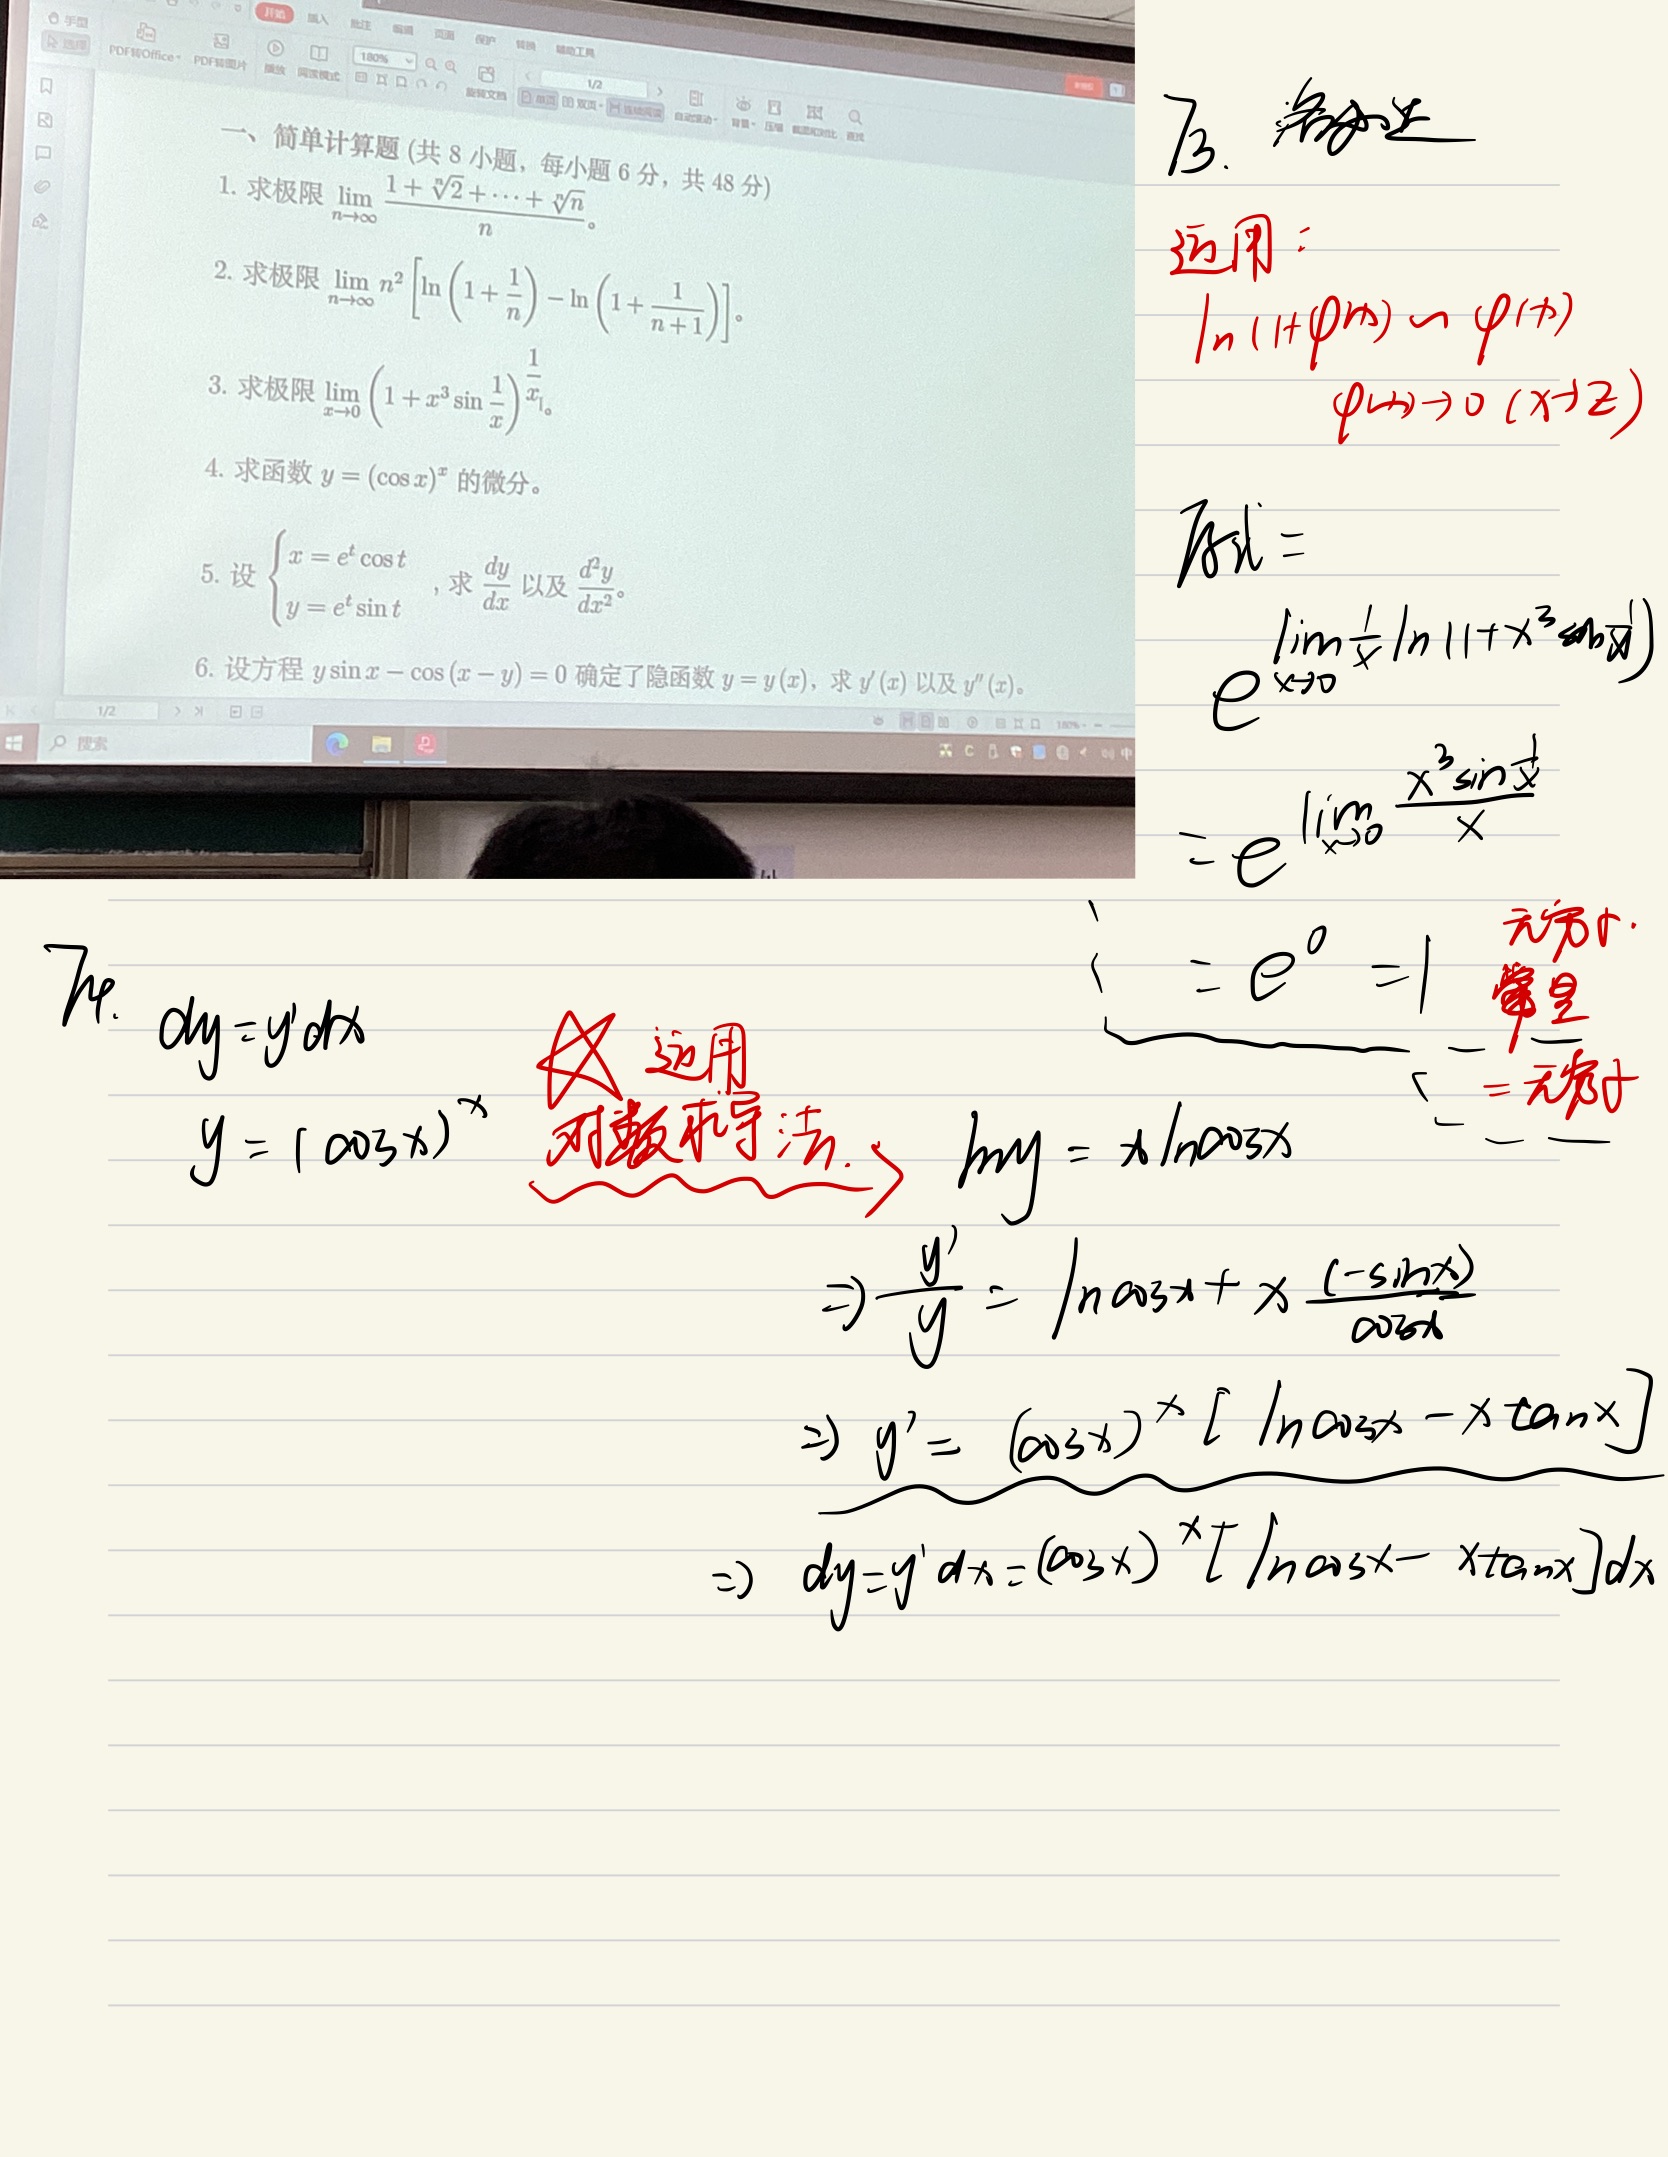 手型
选择
PDF转Office
PDF转图片
开始 插入 批注 编辑 页面 保护 转换 辅助工具
播放
阅读模式
180%
旋转文档
1/2
单页 双页 连续阅读
自动滚动
背景
压缩
截图和对比
查找
一、简单计算题 (共 8 小题，每小题 6 分，共 48 分)
1. 求极限 lim_{n→∞} (1 + ⁿ√2 + ⋯ + ⁿ√n)/n。
2. 求极限 lim_{n→∞} n² [ln(1 + 1/n) − ln(1 + 1/(n+1))]。
3. 求极限 lim_{x→0} (1 + x³ sin 1/x)^{1/x}。
4. 求函数 y = (cos x)^x 的微分。
5. 设 { x = e^t cos t , y = e^t sin t , 求 dy/dx 以及 d²y/dx²。
6. 设方程 y sin x − cos (x − y) = 0 确定了隐函数 y = y(x)，求 y′(x) 以及 y″(x)。
1/2
180%
搜索
中
T3.
运用：
ln(1+φ(x)) ~ φ(x)
φ(x)→0 (x→Z)
原式 =
e^{lim_{x→0} 1/x ln(1+x³ sin 1/x)}
= e^{lim_{x→0} (x³ sin 1/x)/x}
= e^0 = 1
无穷小·
常量
= 无穷小
T4.
dy = y′dx
y = (cosx)^x
运用
对数求导法.
lny = x lncosx
⇒ y′/y = lncosx + x (-sinx)/cosx
⇒ y′ = (cosx)^x [lncosx − x tanx]
⇒ dy = y′dx = (cosx)^x [lncosx − xtanx]dx